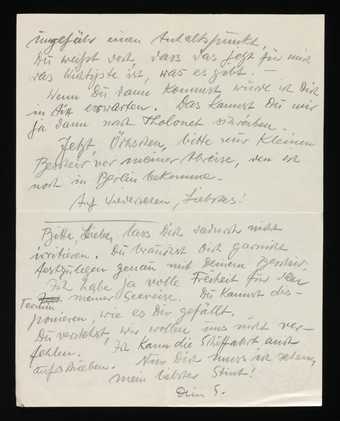 ungefähr einen Anhaltspunkt.
Du weisst doch, dass das jetzt für mich
das Wichtigste ist, was es gibt. —
Wenn Du dann kommst, würde ich Dich
in Aix erwarten. Das kannst Du mir
ja dann nach Tholonet schreiben.
Jetzt, bitte nur kleinen
Bescheid vor meiner Abreise, den ich
noch in Berlin bekomme.
Auf Wiedersehen, Liebstes!
Bitte, Liebes, lass Dich dadurch nicht
irritieren. Du brauchst Dich garnicht
festzulegen genau mit Deinem Bescheid.
Ich habe ja volle Freiheit für den
Termin meiner Seereise. Du kannst dis-
ponieren, wie es Dir gefällt.
Du verstehst, wir wollen uns nicht ver-
fehlen. Ich kann die Schiffahrt auch
aufschieben. Nur Dich muss ich sehen,
mein liebster
Dein S.